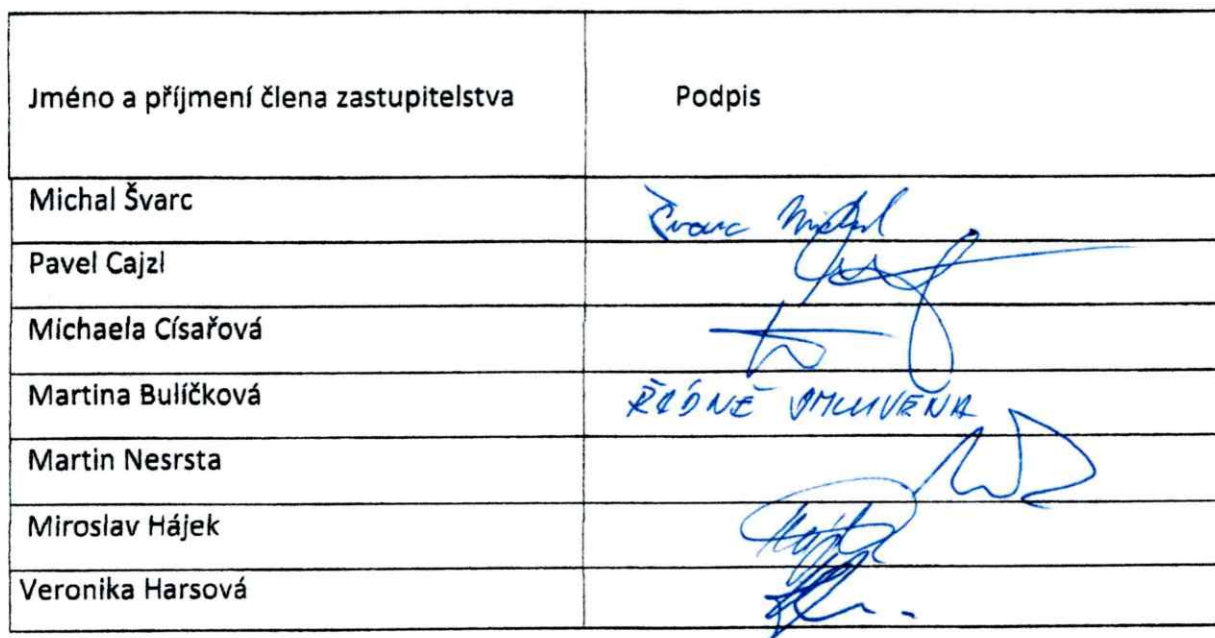 Jméno a příjmení člena zastupitelstva Podpis
Michal Švarc Švarc Michal
Pavel Cajzl
Michaela Císařová
Martina Bulíčková ŘÁDNĚ OMLUVENA
Martin Nesrsta
Miroslav Hájek
Veronika Harsová